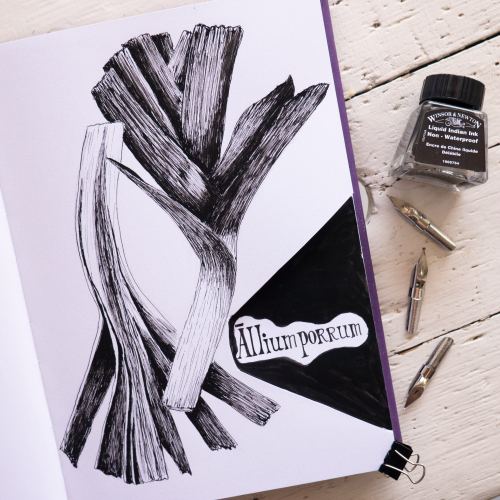 Āllium porrum
WINSOR & NEWTON
Liquid Indian Ink
Non - Waterproof
Encre de Chine liquide
Délébile